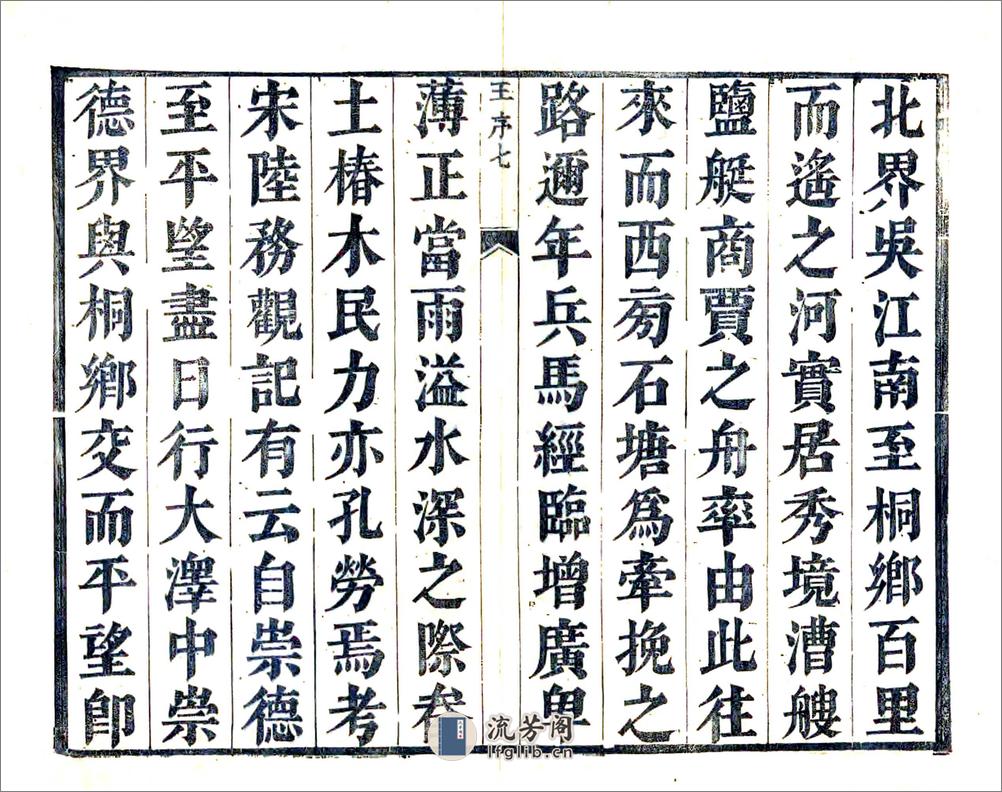 北界吳江南至桐鄉百里
而遙之河實居秀境漕艘
鹽艇商賈之舟率由此往
來而西旁石塘爲牽挽之
路邇年兵馬經臨增廣卑
王序七
薄正當雨溢水深之際畚
土樁木民力亦孔勞焉考
宋陸務觀記有云自崇德
至平望盡日行大澤中崇
德界與桐鄉交而平望卽
流芳阁
lfglib.cn